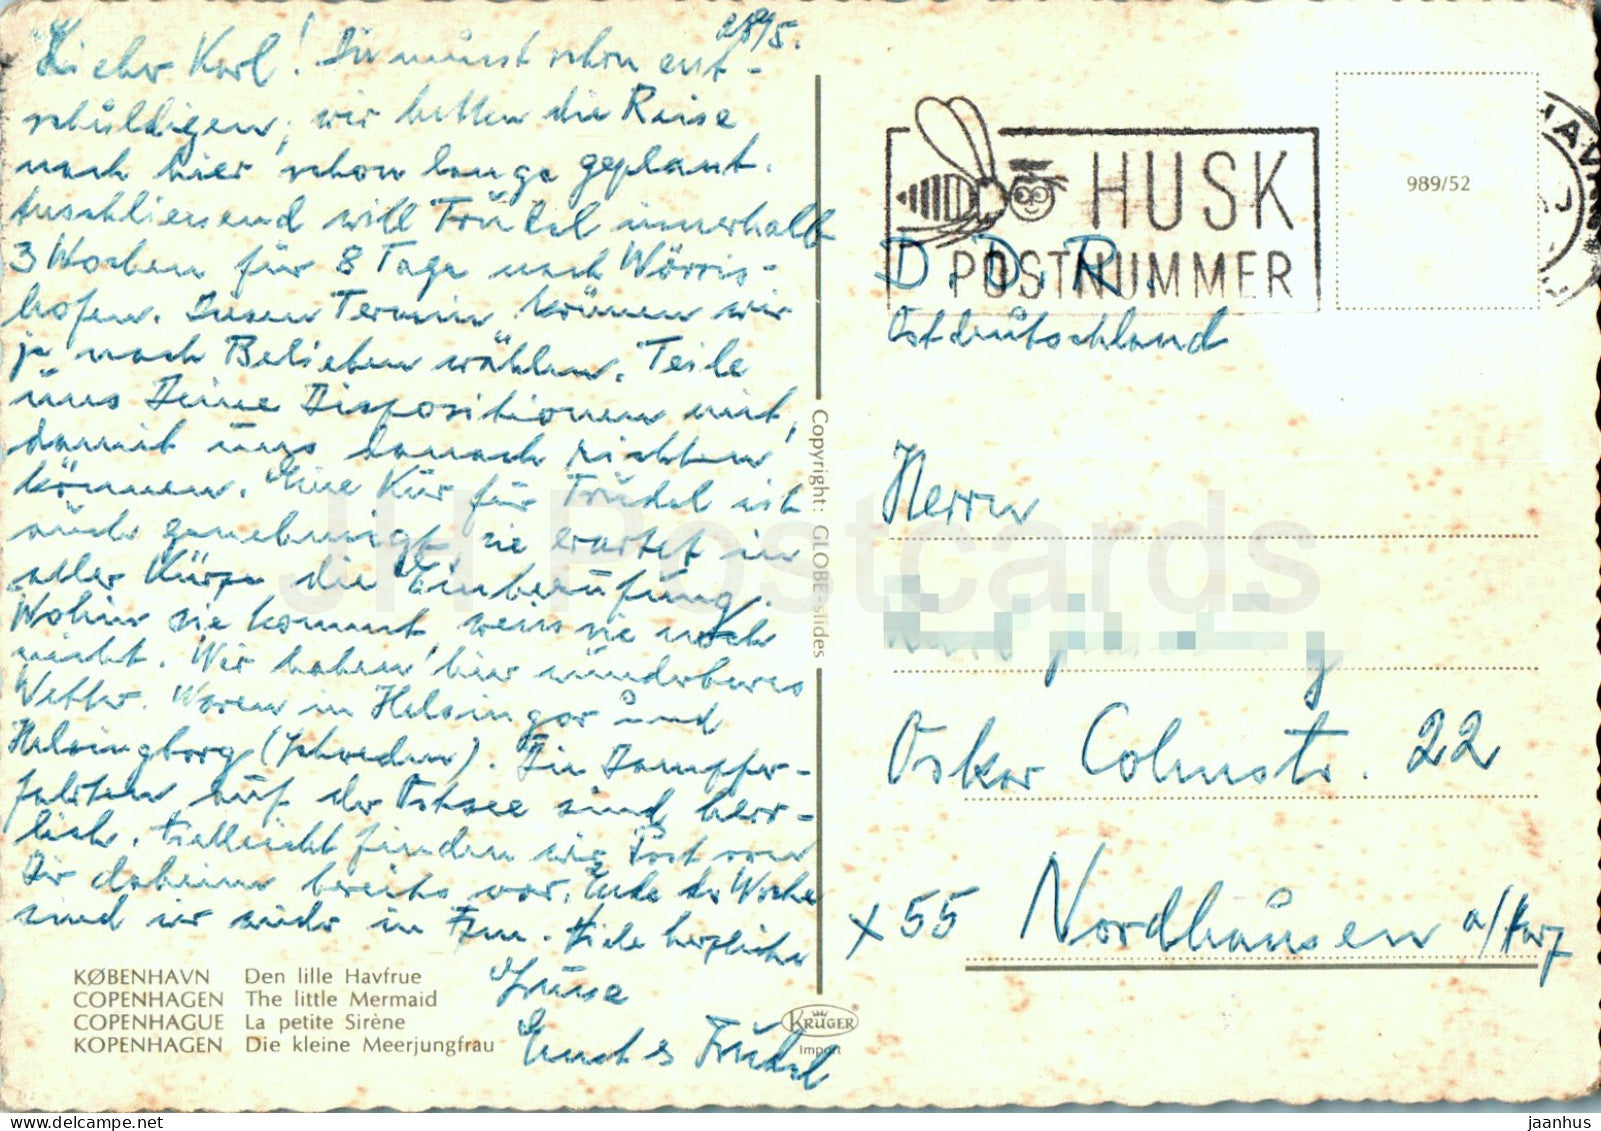 28/5.
Lieber Karl! Du müsst schon ent-
schuldigen, wir hatten die Reise
nach hier schon lange geplant.
Anschliessend will Trudel innerhalb
3 Wochen für 8 Tage nach Wörris-
hofen. Diesen Termin können wir
ja nach Belieben wählen. Teile
uns Deine Dispositionen mit,
damit uns danach richten
können. Eine Kur für Trudel ist
auch genehmigt, sie erartet in
aller Kürze die Einberufung.
Wohin sie kommt, weis sie noch
nicht. Wir haben hier wunderbares
Wetter. Waren in Helsingor und
Helsingborg (Schweden). Die Dampfer-
fahrten auf der Ostsee sind herr-
lich. Vielleicht finden wir Post von
Dir daheim bereits vor. Ende der Woche
sind wir wieder in Ffm. Viele herzliche
Grüsse
Trudel
KØBENHAVN Den lille Havfrue
COPENHAGEN The little Mermaid
COPENHAGUE La petite Sirène
KOPENHAGEN Die kleine Meerjungfrau
Copyright: GLOBE-slides
KRÜGER®
Import
HUSK
POSTNUMMER
989/52
D.D.R.
Ostdeutschland
Herrn
Oskar Cohnstr. 22
x 55 Nordhausen a/Harz
JH Postcards
jaanhus